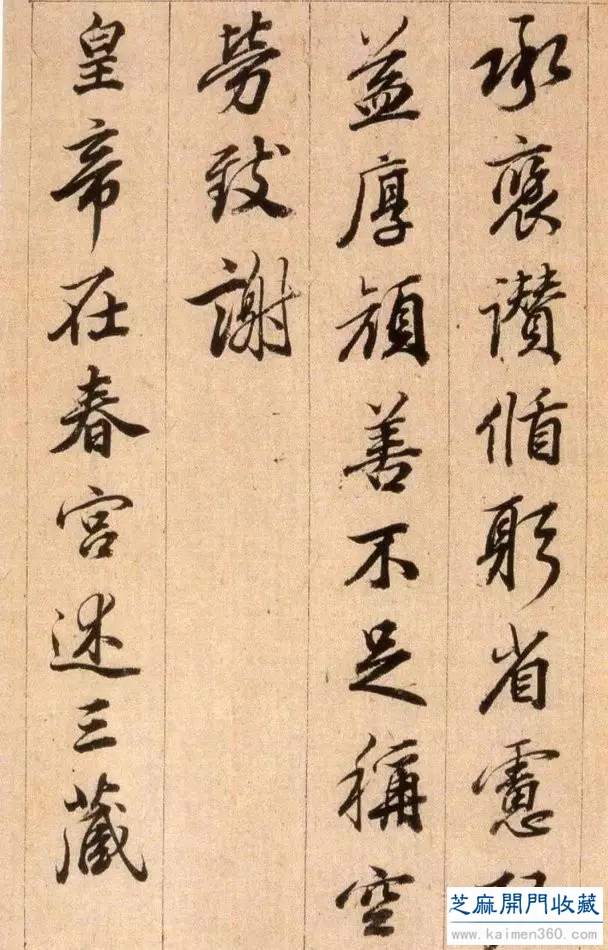 承褒讃循躬省慮
益厚顔善不足稱空
勞致謝
皇帝在春宮述三藏
芝麻開門收藏
www.kaimen360.com